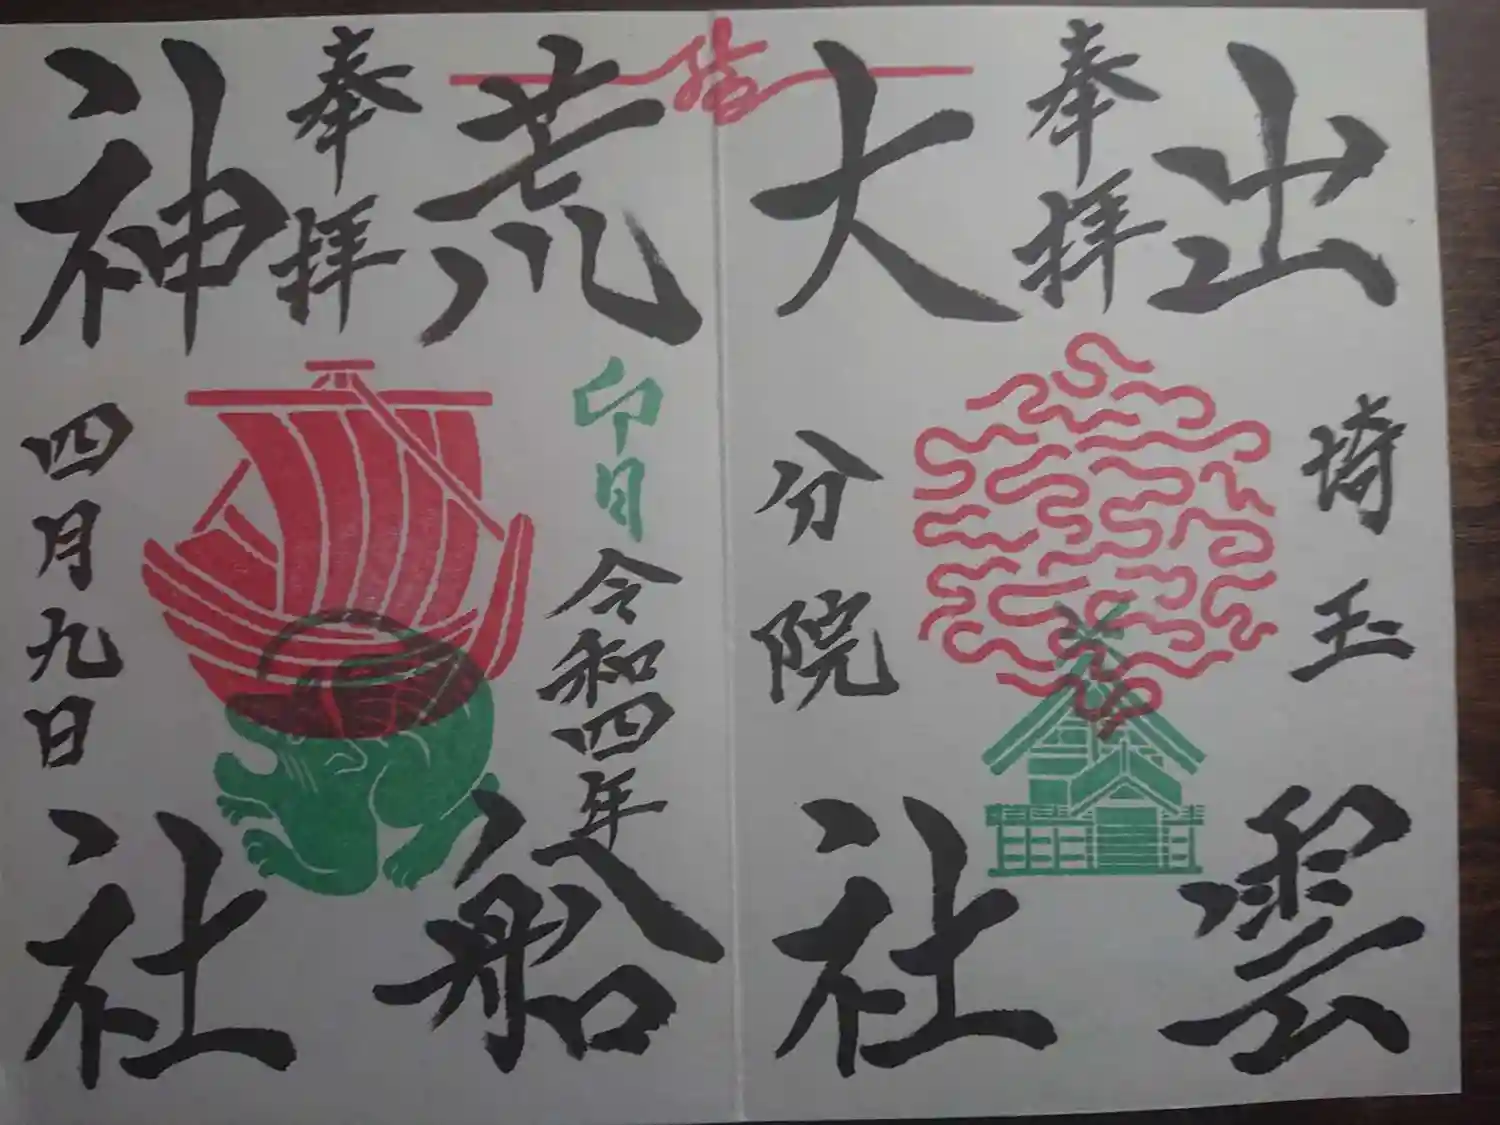 出雲
奉拝
大社
埼玉
分院
結
荒船
奉拝
神社
卯日
令和四年
四月九日